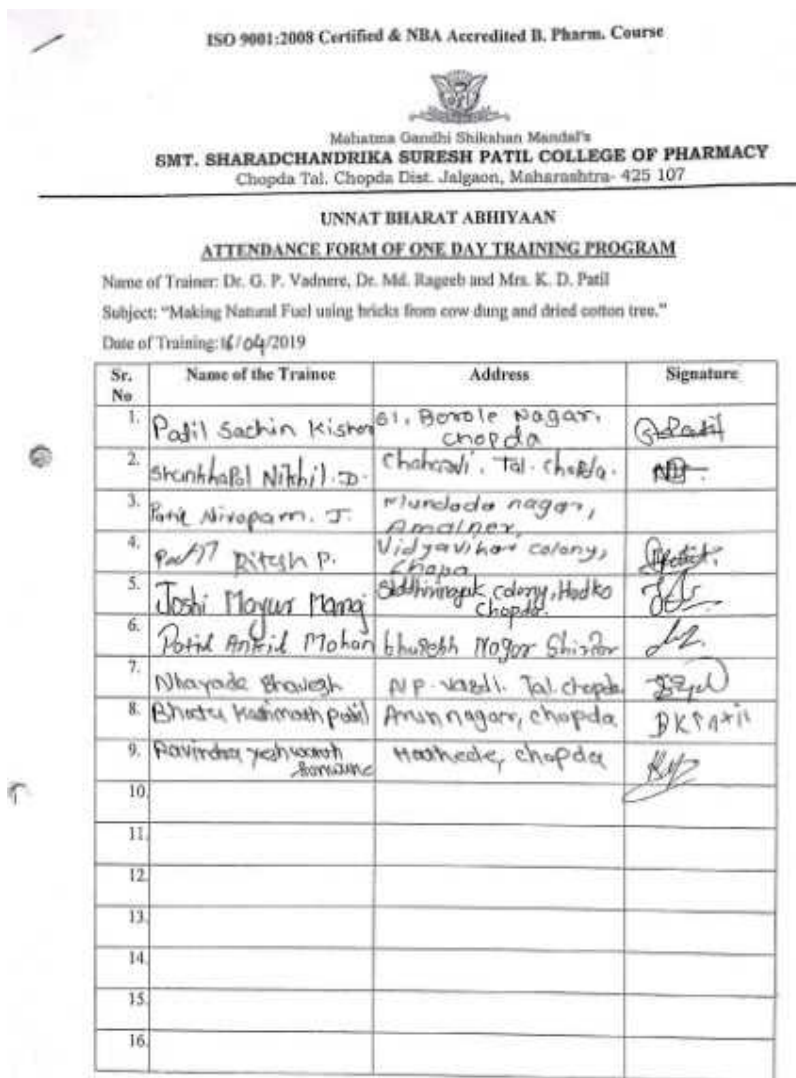 ISO 9001:2008 Certified & NBA Accredited B. Pharm. Course
Mahatma Gandhi Shikshan Mandal's
SMT. SHARADCHANDRIKA SURESH PATIL COLLEGE OF PHARMACY
Chopda Tal. Chopda Dist. Jalgaon, Maharashtra- 425 107
UNNAT BHARAT ABHIYAAN
ATTENDANCE FORM OF ONE DAY TRAINING PROGRAM
Name of Trainer: Dr. G. P. Vadnere, Dr. Md. Rageeb and Mrs. K. D. Patil
Subject: "Making Natural Fuel using bricks from cow dung and dried cotton tree."
Date of Training: 16/04/2019
Sr. No Name of the Trainee Address Signature
1. Patil Sachin Kishor 61, Borole Nagar, chopda
2. Nikhil. D. Tal. chopda.
3. Patil Niropam. J. Mundada nagar, Amalner,
4. Patil Ritesh P. Vidyavihar colony,
5. Joshi Mayur colony, Hudko Chopda.
6. Patil Mohan Nagar
7. Bhavesh Tal. chopda
8. patil Arun nagar, chopda BKPatil
9. Ravindra chopda
10.
11.
12.
13.
14.
15.
16.